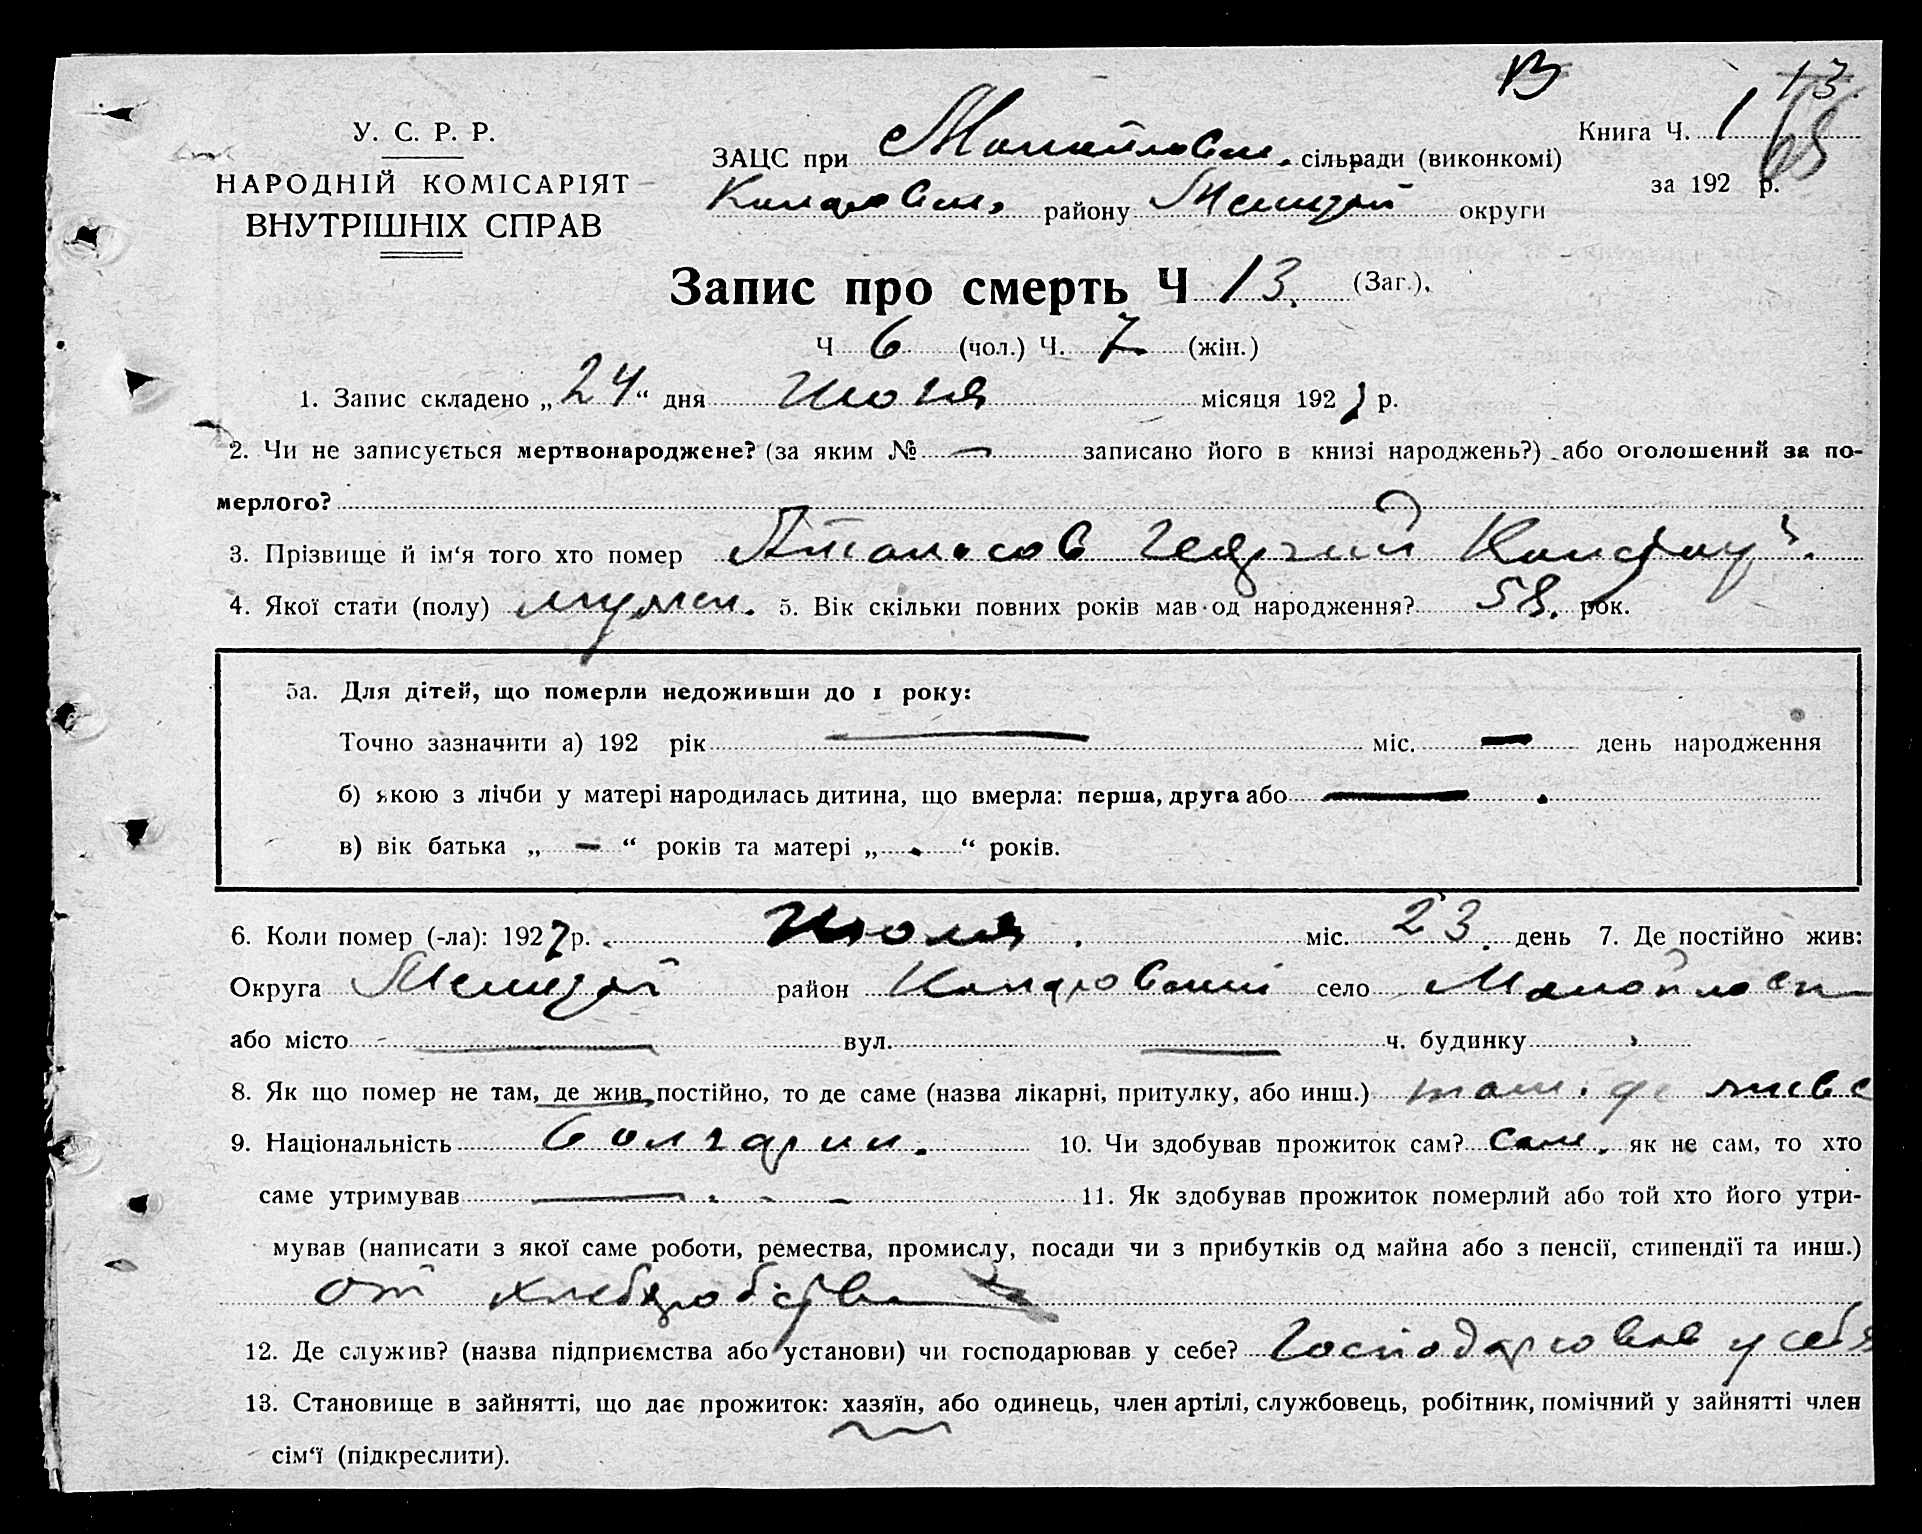 13.
У. С. Р. Р.
НАРОДНІЙ КОМІСАРІЯТ
ВНУТРІШНІХ СПРАВ
Книга Ч. 1 68
за 192 р.
ЗАЦС при Манойловск. сільради (виконкомі)
району Мелитоп округи
Запис про смерть Ч 13. (Заг.).
Ч 6 (чол.) Ч. 7 (жін.)
1. Запис складено „24“ дня Июля місяця 1927 р.
2. Чи не записується мертвонароджене? (за яким № — записано його в книзі народжень?) або оголошений за по-
мерлого?
3. Прізвище й ім‘я того хто помер Атанасов Георгий
4. Якої стати (полу) мужск. 5. Вік скільки повних років мав од народження? 58. рок.
5а. Для дітей, що померли недоживши до 1 року:
Точно зазначити а) 192 рік — міс. — день народження
б) якою з лічби у матері народилась дитина, що вмерла: перша, друга або —
в) вік батька „ — “ років та матері „ - “ років.
6. Коли помер (-ла): 1927 р. Июля міс. 23. день 7. Де постійно жив:
Округа Мелитоп район село
або місто — вул. — ч. будинку
8. Як що помер не там, де жив постійно, то де саме (назва лікарні, притулку, або инш.) там. де живе
9. Національність болгарин. 10. Чи здобував прожиток сам? Сам. як не сам, то хто
саме утримував — 11. Як здобував прожиток померлий або той хто його утри-
мував (написати з якої саме роботи, ремества, промислу, посади чи з прибутків од майна або з пенсії, стипендії та инш.)
от хлеборобства
12. Де служив? (назва підприємства або установи) чи господарював у себе? Господарював у себя
13. Становище в зайнятті, що дає прожиток: хазяїн, або одинець, член артілі, службовець, робітник, помічний у зайнятті член
сім‘ї (підкреслити).